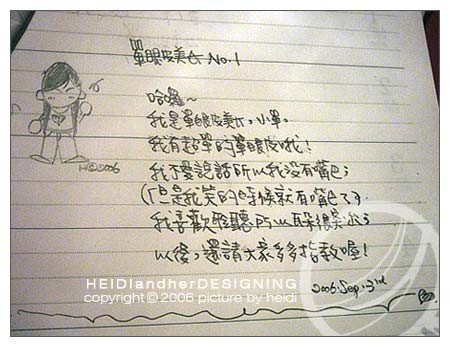 單眼皮美女 No.1
哈囉~
我是單眼皮美女,小單。
我有超單的單眼皮哦!
我不愛說話所以我沒有嘴巴;
(但是我笑的時候就有嘴巴了)
我喜歡聆聽所以耳朵很
以後,還請大家多多指教喔!
2006.Sep.3rd
H@2006
HEIDIandherDESIGNING
copyright © 2006 picture by heidi